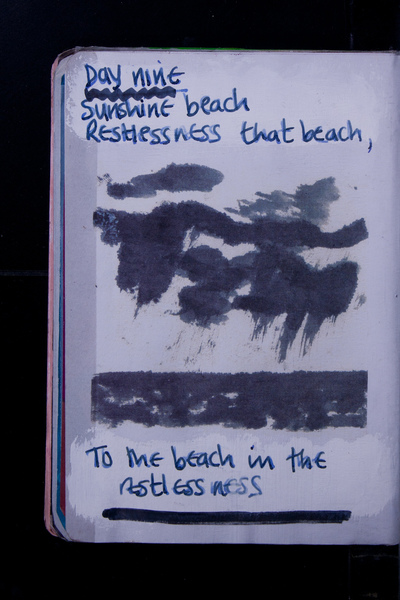 Day nine
Sunshine beach
Restlessness that beach,
To the beach in the
restlessness